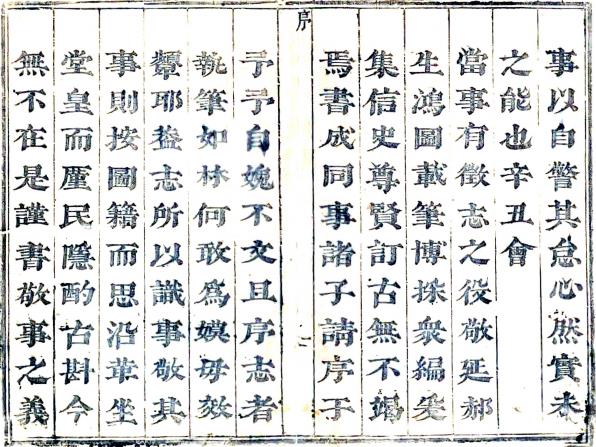 事以自警其怠心然實未
之能也辛丑會
當事有徵志之役敬延郝
生鴻圖載筆博採衆編爰
集信史尊賢訂古無不竭
焉書成同事諸子請序于
序
一
予予自媿不文且序志者
執筆如林何敢為嫫母效
顰耶盇志所以識事敬其
事則按圖籍而思沿革坐
堂皇而廑民隱酌古斟今
無不在是謹書敬事之義